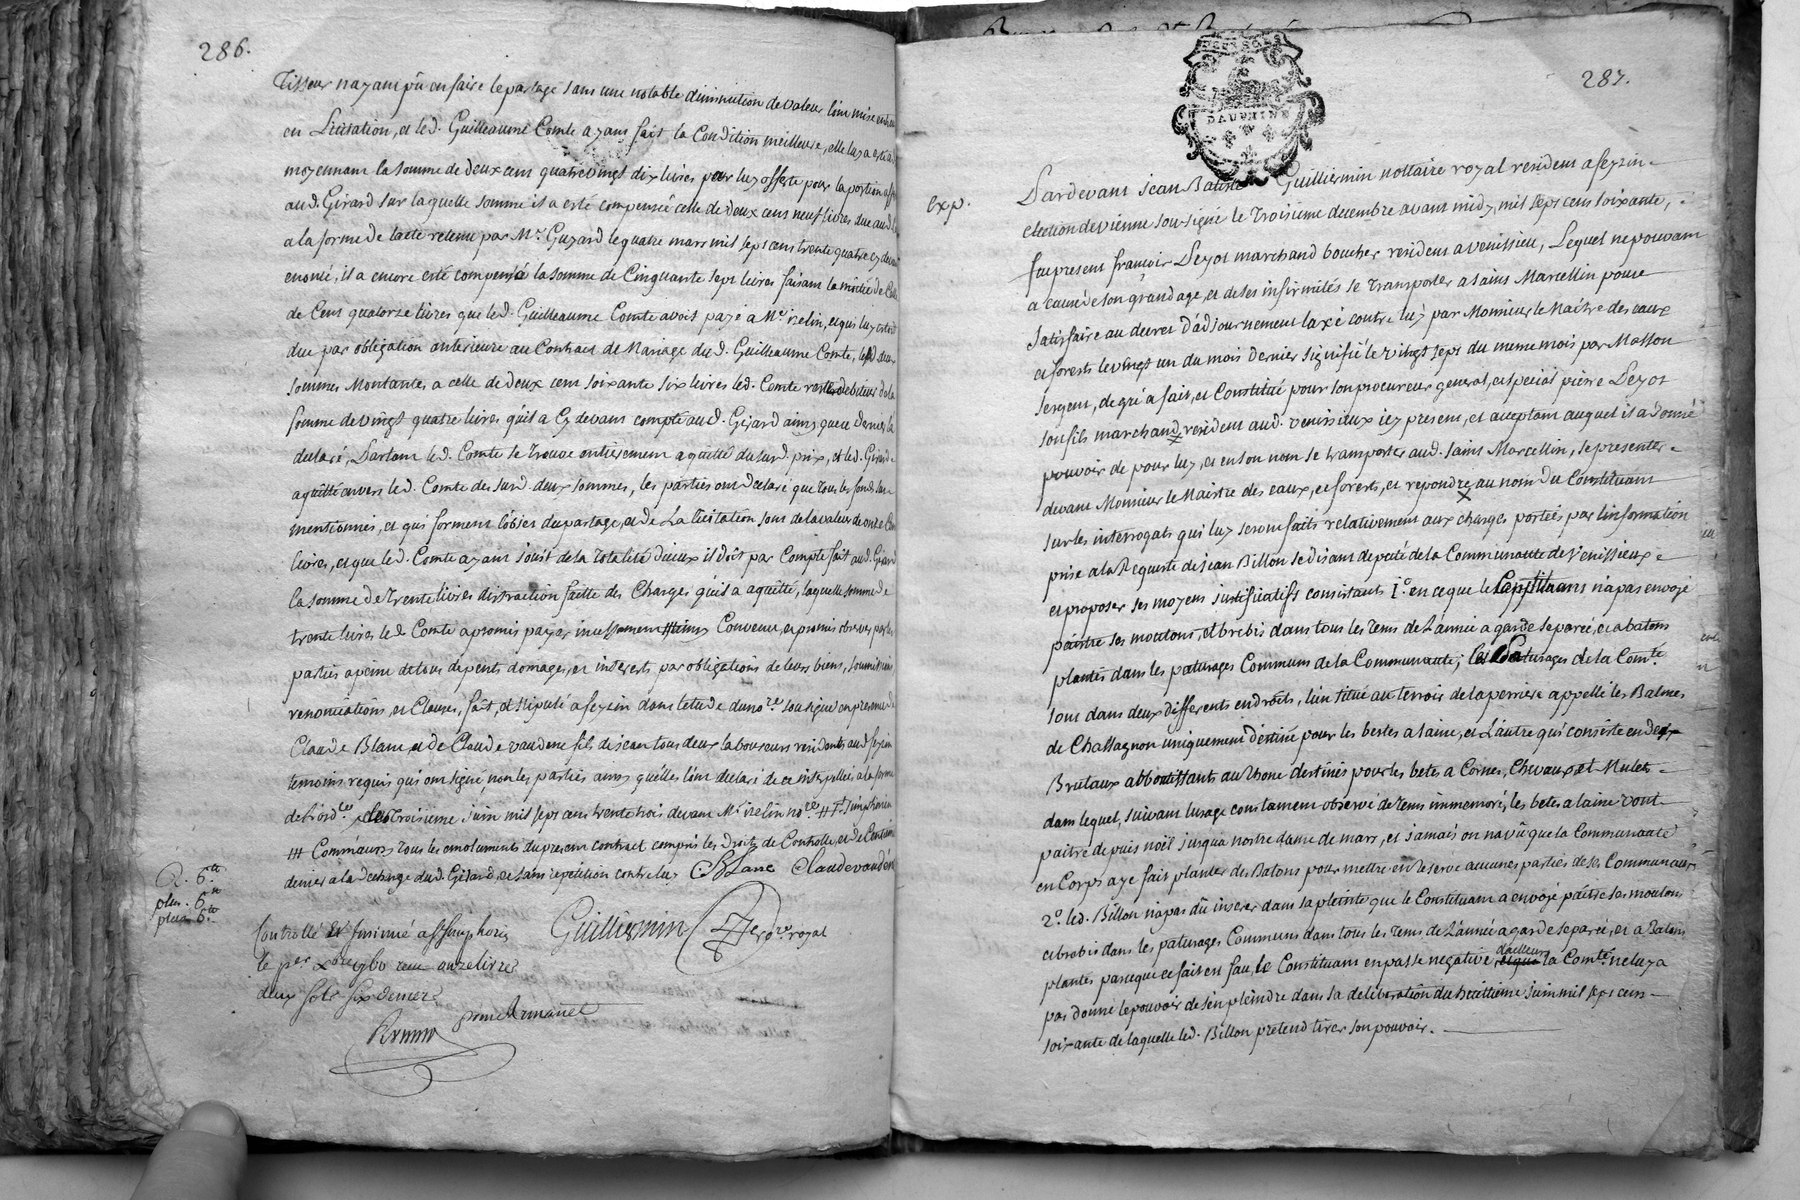 286.
Tisseur nayant pû en faire le partage sans une notable diminution de valeur lont mise
en Licitation, et led. Guilleaume Comte ayant fait la Condition meilleure, elle luy a esté
moyennant la somme de deux cent quatre vingt dix livres par luy offerte pour la portion
aud. Girard sur laquelle somme il a esté compensée celle de deux cens neuf livres due aud.
a la forme de lacte retenu par Mr. Guyard le quatre mars mil sept cens trente quatre cy devant
enoncé, il a encore esté compensé la somme de Cinquante sept livres faisant la moitié de Celle
de Cent quatorze livres que led. Guilleaume Comte avoit payé a Me. izelin, et qui luy estoit
due par obligation anterieure au Contract de Mariage dud. Guilleaume Comte, lesd. deux
sommes Montantes a celle de deux cent soixante six livres led. Comte reste debiteur de la
somme de vingt quatre livres quil a Cy devant compté aud. Girard ainsy que ce dernier la
declaré, Partant led. Comte se trouve entierement aquitté du susd. prix, et led. Girard
aquitté envers led. Comte des susd. deux sommes, les parties ont declaré que tous les fonds
mentionnés, et qui forment lobjet du partage, et de La licitation sont de la valeur de onze Cent
livres, et que led. Comte ayant joüit de la totalité diceux il doit par Compte fait aud. Girard
la somme de trente livres distraction faitte des Charges quil a aquitté, laquelle somme de
trente livres led. Comte a promis payer incessament Convenu, et promis observer par les
parties a peine de tous depents domages, et interests par obligations de leurs biens, soumissions
renonciations, et Clauses, fait, et stipulé a feyzin dans letude du nore. sousigné en presence de
Claude Blanc, et de Claude vaudene fils de jean tous deux laboureurs residents aud. feyzin
temoins requis qui ont signé, non les parties ainsy quelles lont declaré de ce interpellées a la forme
de lord.ce troisieme juin mil sept cens trente trois devant Me izelin nore. St simphorien
Comte aura tous les emolumens du present contract compris les Droits de Controlle, et de Centieme
denier a la decharge dud. Girard, et sans repetition contre luy BLanc Claude vaudene
R. 6tt
plus. 6tt
plus 6tt
Guilliermin nore royal
Controllé et insinué a St simphorien
le per Xbre 1760 reçu onze livres
deux sols six deniers
pour Armanet
Brunn
287.
DAUPHINE
exp.
Pardevant jean Batiste Guilliermin nottaire royal resident a feyzin
election de vienne sousigné le Troisieme decembre avant midy, mil sept cens soixante,
fut present françois Peyot marchand boucher resident a venissieu, Lequel ne pouvant
a cause de son grand age, et de ses infirmités se transporter a saint Marcellin pour
satisfaire au decret dadjournement laxé contre luy par Monsieur le Maitre des eaux
et forests le vingt un du mois dernier signifié le vingt sept du meme mois par Masson
sergent, de gré a fait, et Constitué pour son procureur general, et special pierre Peyot
son fils marchand resident aud. venissieux icy present, et aceptant auquel il a donné
pouvoir de pour luy, et en son nom se transporter aud. saint Marcellin, se presenter
devant Monsieur le Maistre des eaux, et forests, et repondre au nom du Constituant
sur les interrogats qui luy seront faits relativement aux charges portées par linformation
prise a la Requeste de jean Billon se disant deputé de la Communauté de Venissieux
et proposer ses moyens justificatifs consistants 1o. en ce que le Constituant na pas envoyé
paistre ses moutons, et brebis dans tous les tems de Lannée a garde separée, et a batons
plantés dans les paturages Communs de la Communauté; les Paturages de la Comté.
sont dans deux differents endroits, lun situé au terroir de la perriere appellé les Balmes
de Chassagnon uniquement destiné pour les bestes a laine, et Lautre qui consiste en des
Brotaux abboutissants au Rhone destinés pour les betes a Cornes, Chevaux et Mulets
dans lequel, suivant lusage constament observé de tems immemoré, les betes a laine vont
paitre depuis noël jusqua nostre dame de mars, et jamais on na vû que la Communauté
en Corps aye fait planter des Batons pour mettre en Reserve aucunes parties de ses Communaux
2o. led. Billon na pas dû inserer dans sa pleinte que le Constituant a envoyé paitre ses moutons
et brebis dans les paturages Communs dans tous les tems de Lannée a garde separée, et a Batons
plantés parceque ce fait est faux le Constituant en passe negative, dailleurs la Comté. ne luy a
pas donné le pouvoir de sen pleindre dans sa deliberation du huittieme juin mil sept cens
soixante de laquelle led. Billon pretend tirer son pouvoir.